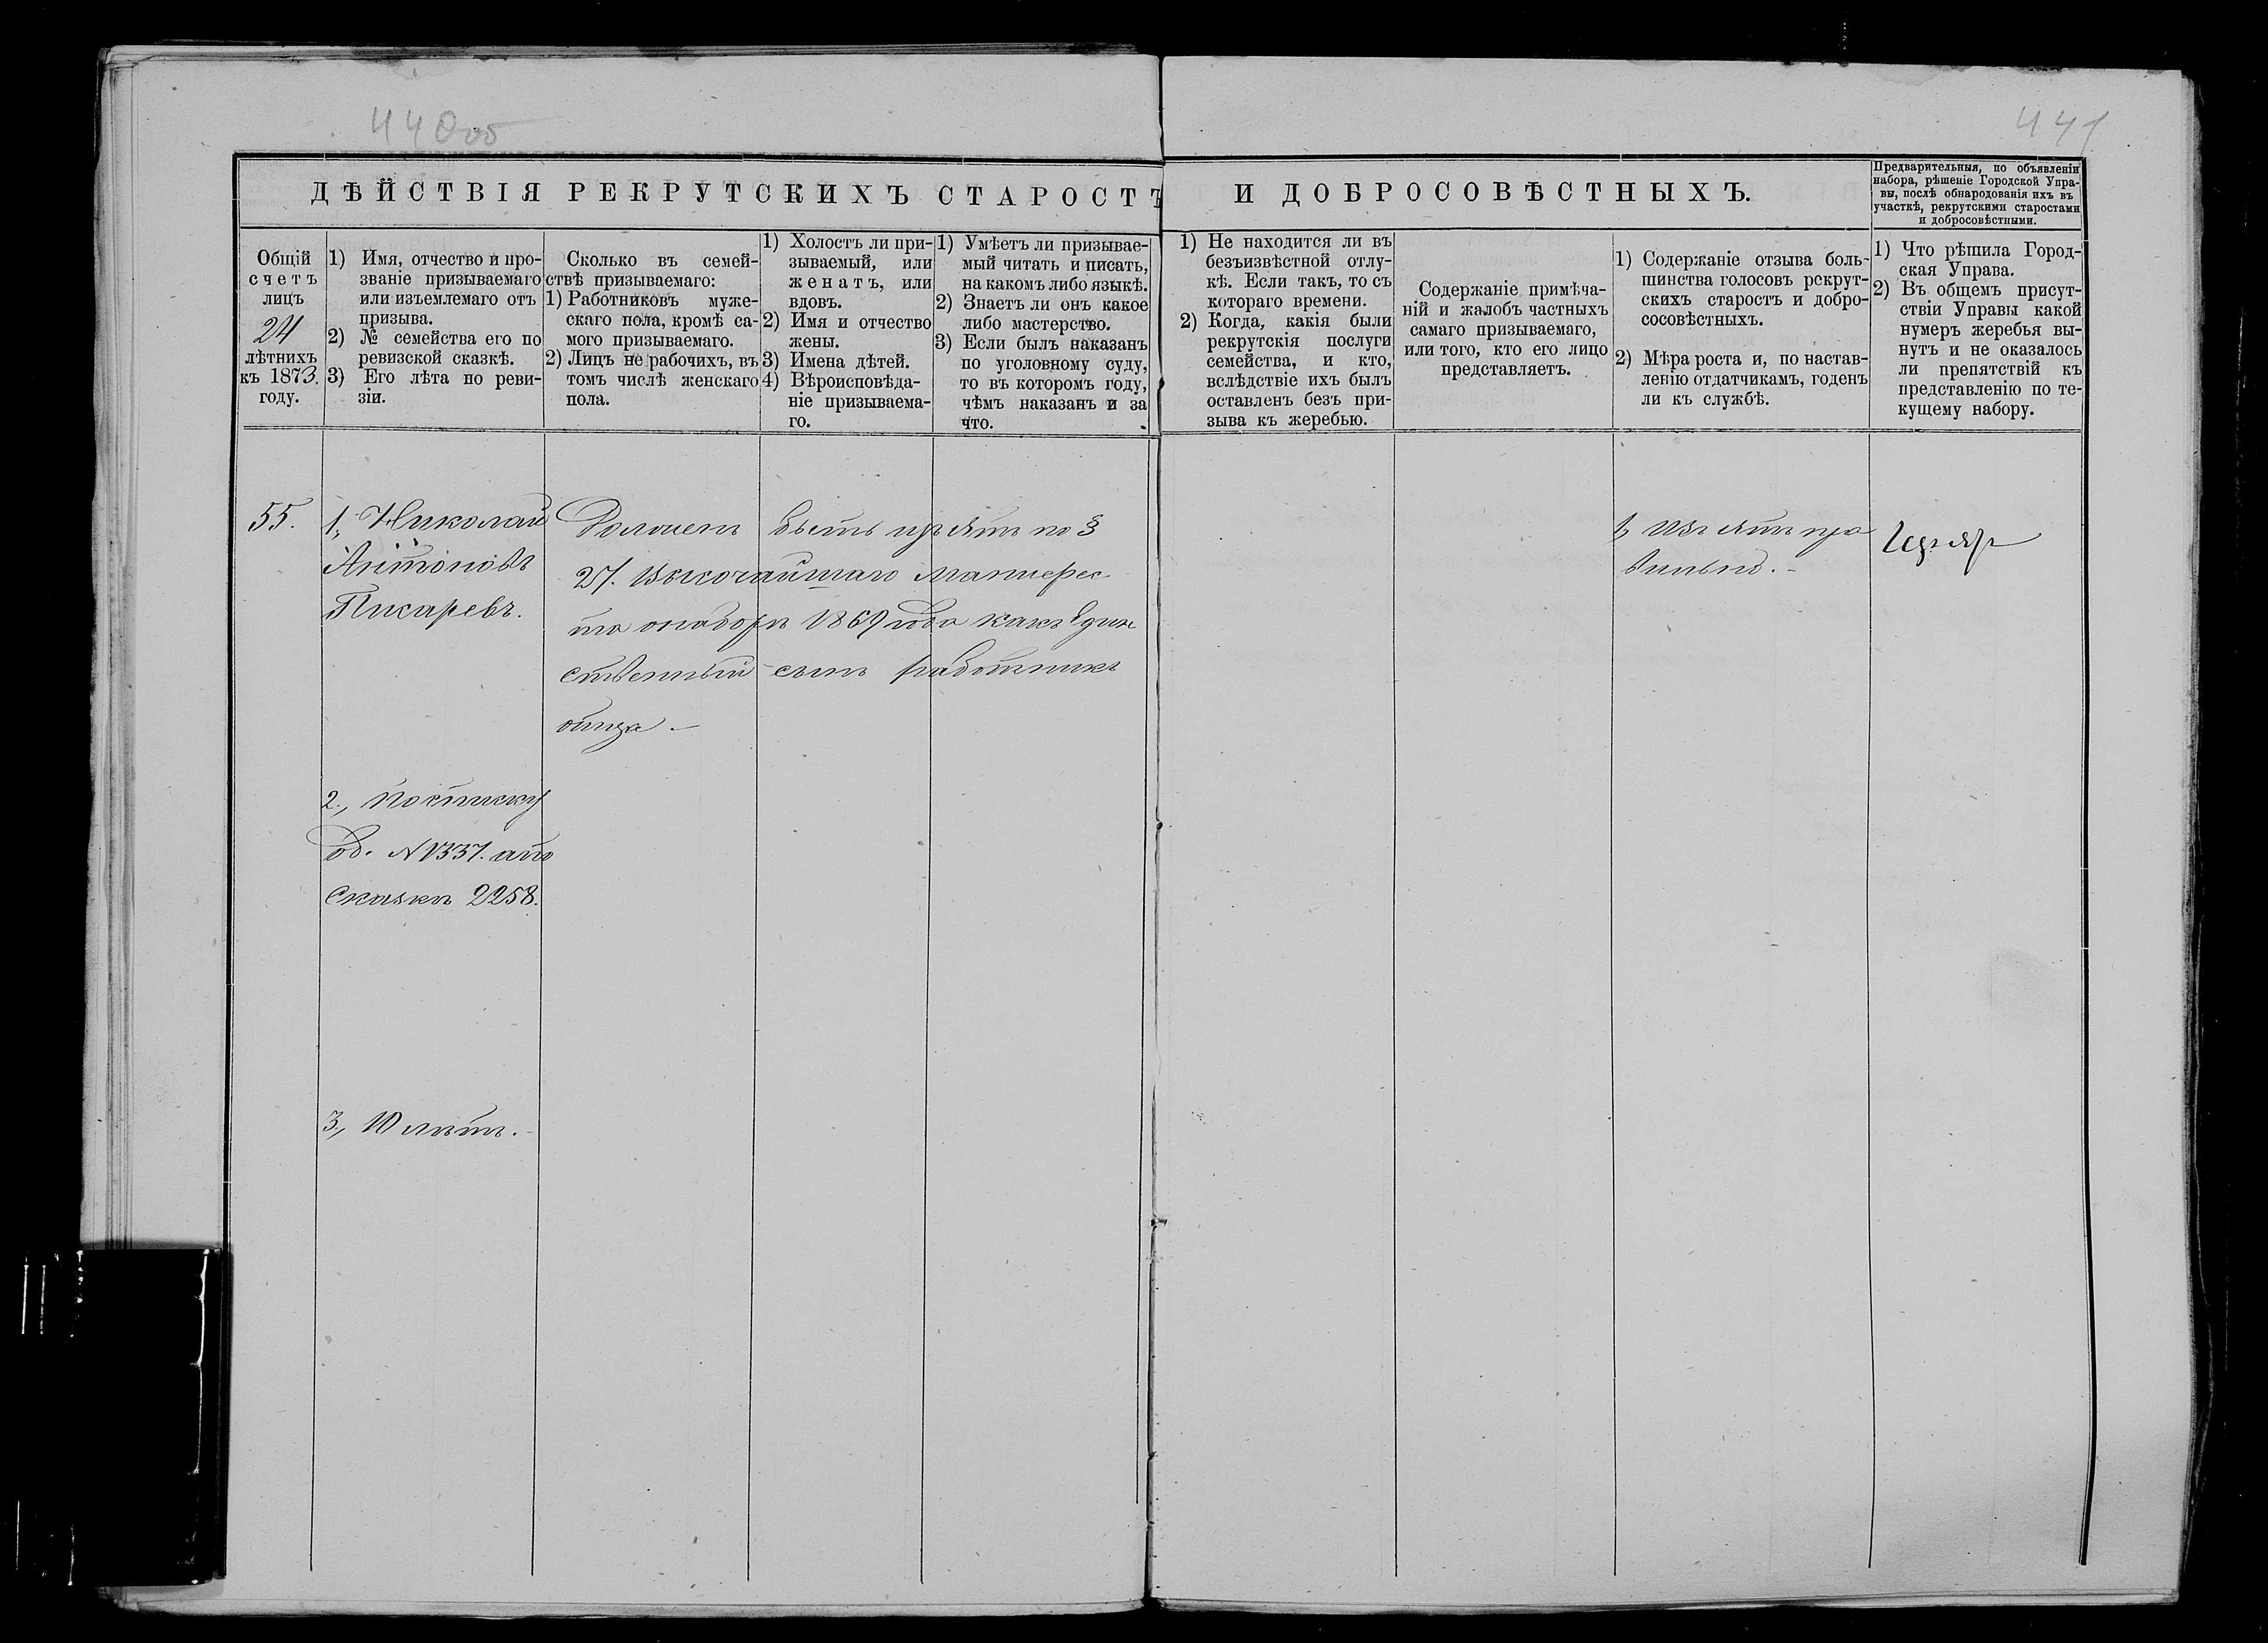 440об
441
ДѢЙСТВІЯ РЕКРУТСКИХЪ СТАРОСТЪ И ДОБРОСОВѢСТНЫХЪ.
Предварительныя, по объявленіи
набора, рѣшеніе Городской Упра-
вы, послѣ обнародованія ихъ въ
участкѣ, рекрутскими старостами
и добросовѣстными.
Общій
счетъ
лицъ
24
лѣтнихъ
къ 1873.
году.
1) Имя, отчество и про-
званіе призываемаго
или изъемлемаго отъ
призыва.
2) № семейства его по
ревизской сказкѣ.
3) Его лѣта по реви-
зіи.
Сколько въ семей-
ствѣ призываемаго:
1) Работниковъ муже-
скаго пола, кромѣ са-
мого призываемаго.
2) Лицъ не рабочихъ, въ
томъ числѣ женскаго
пола.
1) Холостъ ли при-
зываемый, или
женатъ, или
вдовъ.
2) Имя и отчество
жены.
3) Имена дѣтей.
4) Вѣроисповѣда-
ніе призываема-
го.
1) Умѣетъ ли призывае-
мый читать и писать,
на какомъ либо языкѣ.
2) Знаетъ ли онъ какое
либо мастерство.
3) Если былъ наказанъ
по уголовному суду,
то въ которомъ году,
чѣмъ наказанъ и за
что.
1) Не находится ли въ
безъизвѣстной отлу-
кѣ. Если такъ, то съ
котораго времени.
2) Когда, какія были
рекрутскія послуги
семейства, и кто,
вслѣдствіе ихъ былъ
оставленъ безъ при-
зыва къ жеребью.
Содержаніе примѣча-
ній и жалобъ частныхъ
самаго призываемаго,
или того, кто его лицо
представляетъ.
1) Содержаніе отзыва боль-
шинства голосовъ рекрут-
скихъ старостъ и добро-
сосовѣстныхъ.
2) Мѣра роста и, по настав-
ленію отдатчикамъ, годенъ
ли къ службѣ.
1) Что рѣшила Город-
ская Управа.
2) Въ общемъ присут-
ствіи Управы какой
нумеръ жеребья вы-
нутъ и не оказалось
ли препятствій къ
представленію по те-
кущему набору.
55.
1, Николай
Антоновъ
Писаревъ.
2., По списку
об. N 1337. а по
сказкѣ 2258.
3, 10 лѣтъ.
Должен быть изъятъ по §
27. Высочайшаго Манифес
та о наборѣ 1869 года какъ един
ственный сынъ работникъ
отца.
1, Изъятъ пра
вильно.